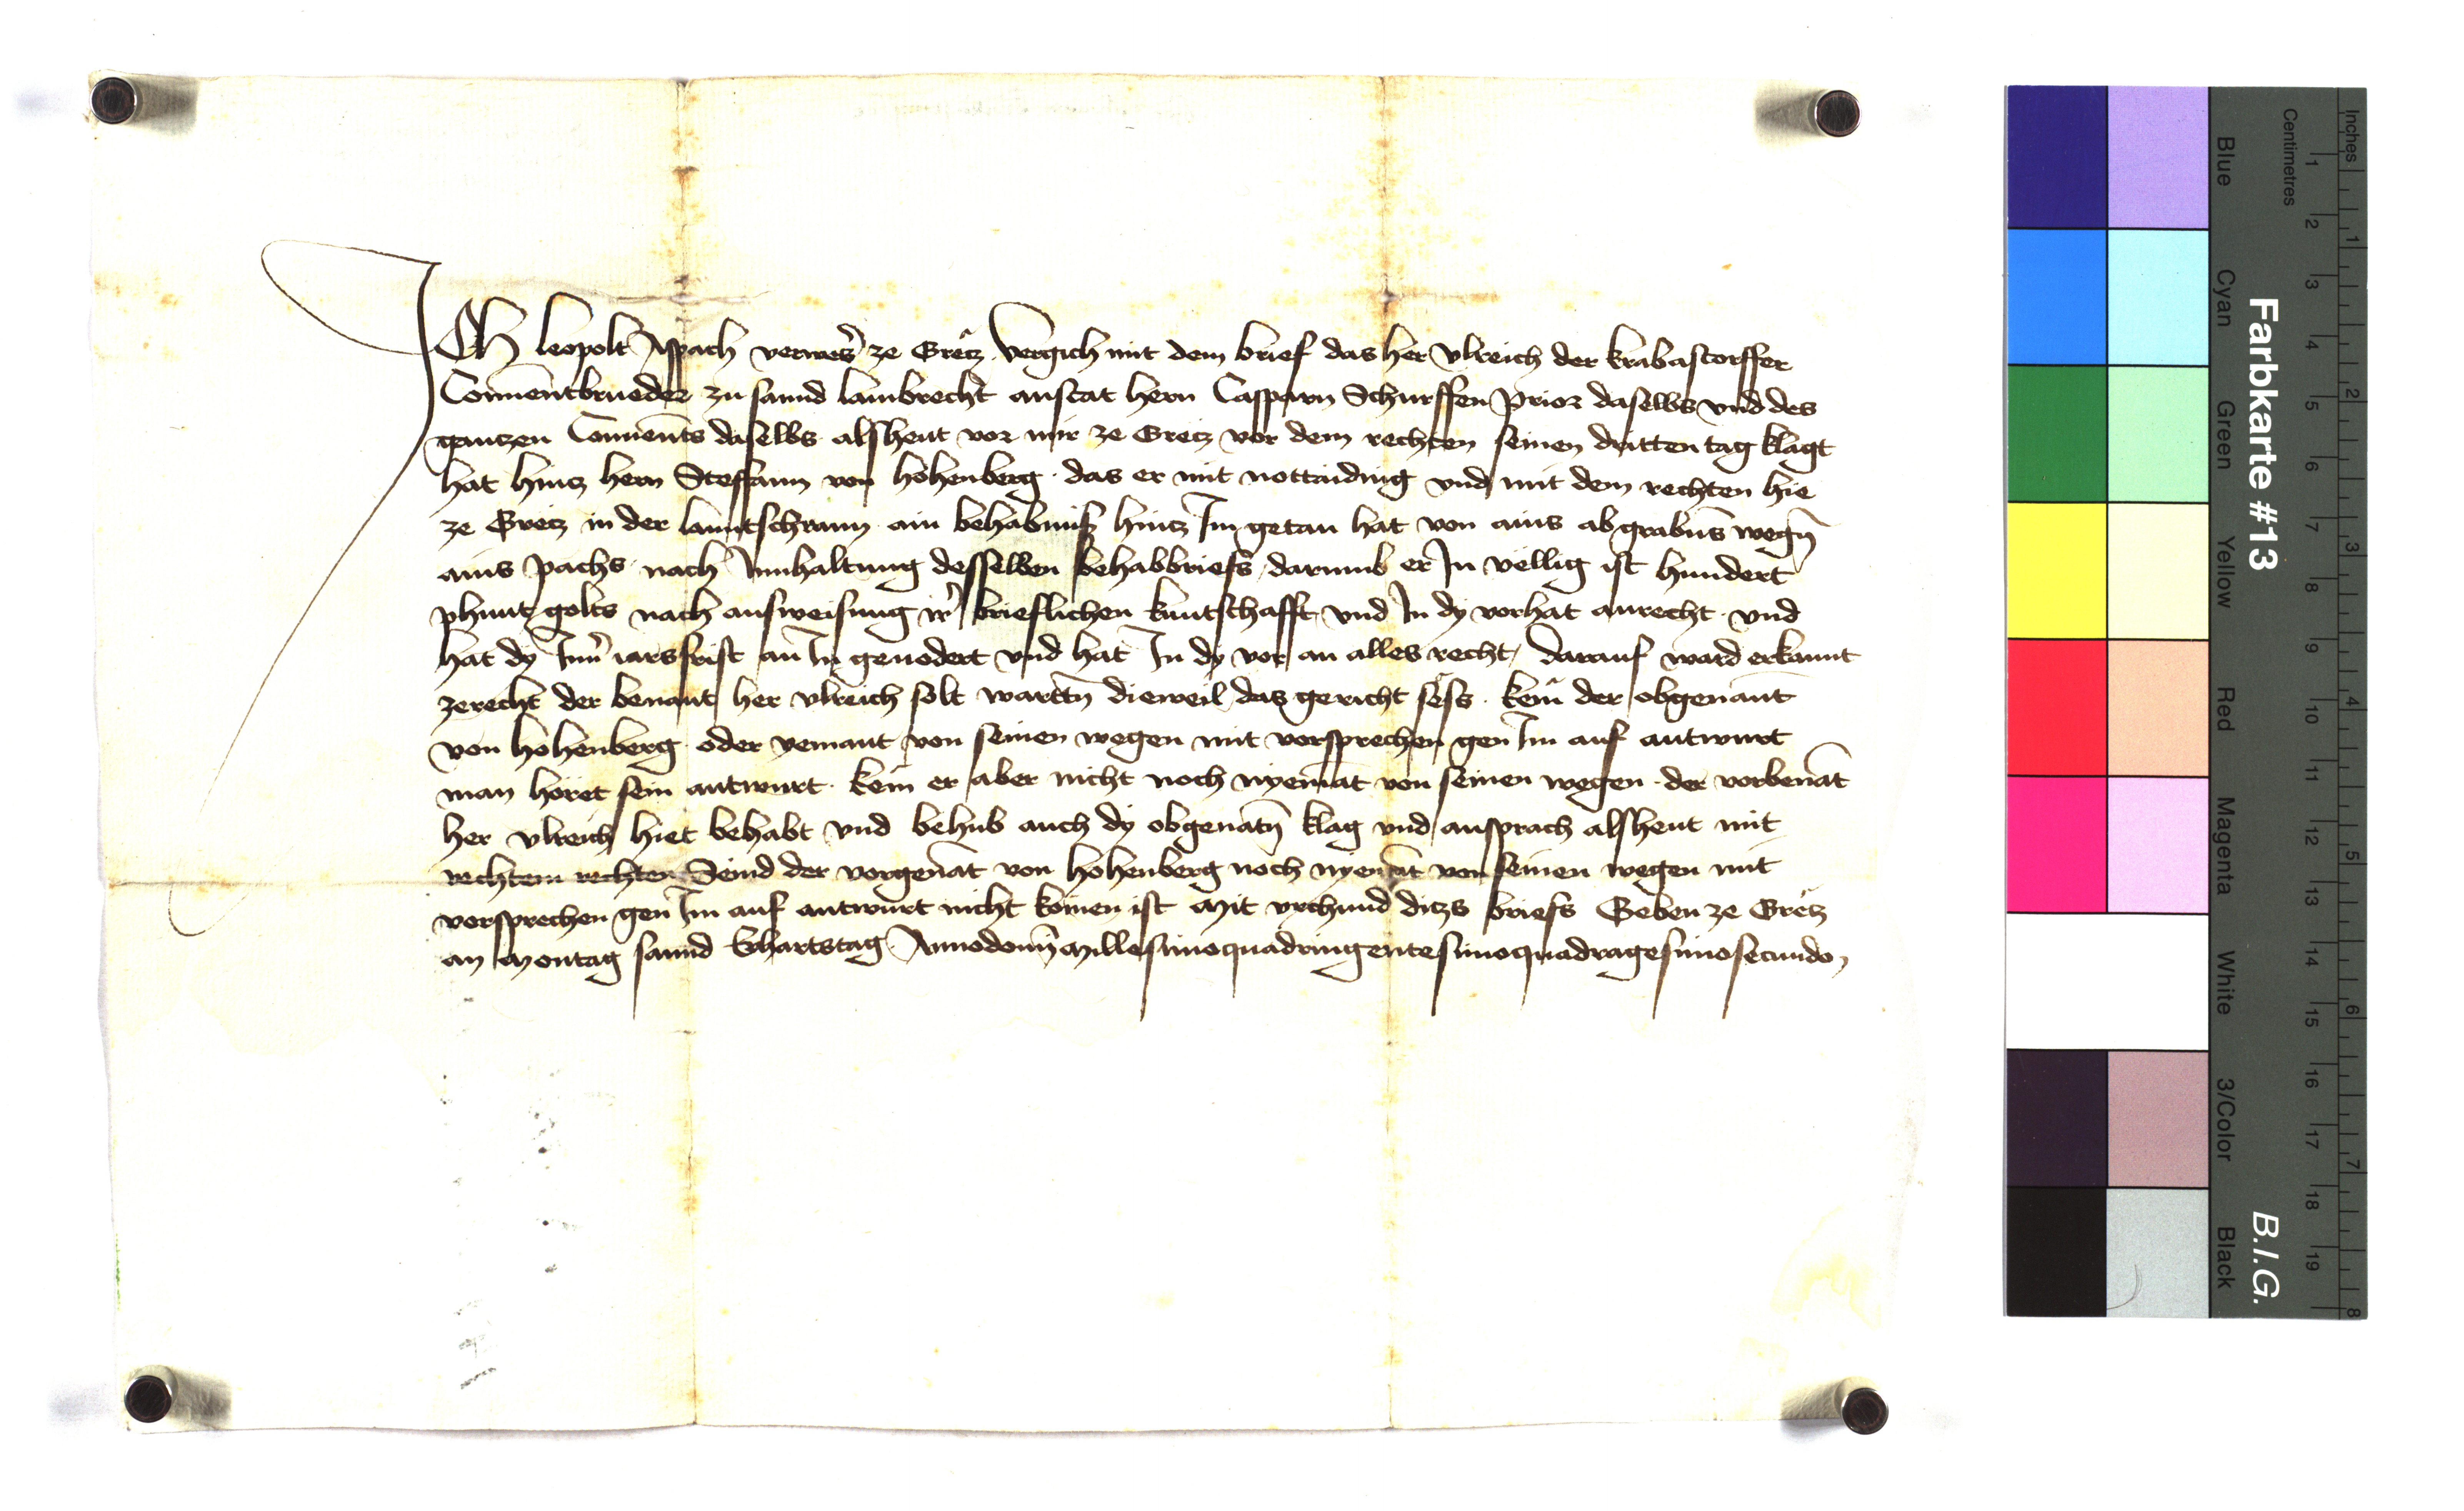 ICh leopolt Aspach verweser ze Gretz Vergich mit dem brief das her vlreich der krabastorffer
Conuentbrueder zu sannd lambrecht anstat hern Casparn Schurffen Prior daselbs vnd des
gantzen Conuents daselbs alsheut vor mir ze Gretz vor dem rechten seinen dritten tag klagt
hat hintz hern Steffann von hohenberg · das er mit nottaiding vnd mit dem rechten hie
ze Gretz in der lanntschrann ain behabnüss hintz Im getan hat von ains abgrabens wegn̄
ains Pachs nach Innhaltung desselben behabbriefs darumb er In vellig ist hundert
phunt golts nach ausweisung ir' brieflichen kuntschafft vnd In dy vorhat anrecht · vnd
hat dy Inn' iarsfrist an In geuodert vnd hat In dy vor an alles recht, Darauf ward erkannt
zerecht der benant her vlreich solt warttn̄ dieweil das gericht sëss · kem̄ der obgenant
von hohenberg oder yemant von seinen wegen mit vorsprechen gen Im auf antwurt
man höret sein antwurt · kem̄ er aber nicht noch nyemāt von seinen wegen · der vorbenāt
her vlreich hiet behabt vnd behub auch dy obgenātn̄ klag vnd ansprach alsheut mit
rechtem rechten Seind der vorgenāt von hohenberg noch nyemāt von seinen wegen mit
vorsprechen gen Im auf antwurt nicht komen ist Mit vrchund ditzs briefs Geben ze Gretz
an Montag sannd Erhartstag Annodomī Millesimoquadringentesimoquadragesimosecundo,
Farbkarte #13
B.I.G.
Blue
Cyan
Green
Yellow
Red
Magenta
White
3/Color
Black
Centimetres
1 2 3 4 5 6 7 8 9 10 11 12 13 14 15 16 17 18 19
Inches
1 2 3 4 5 6 7 8